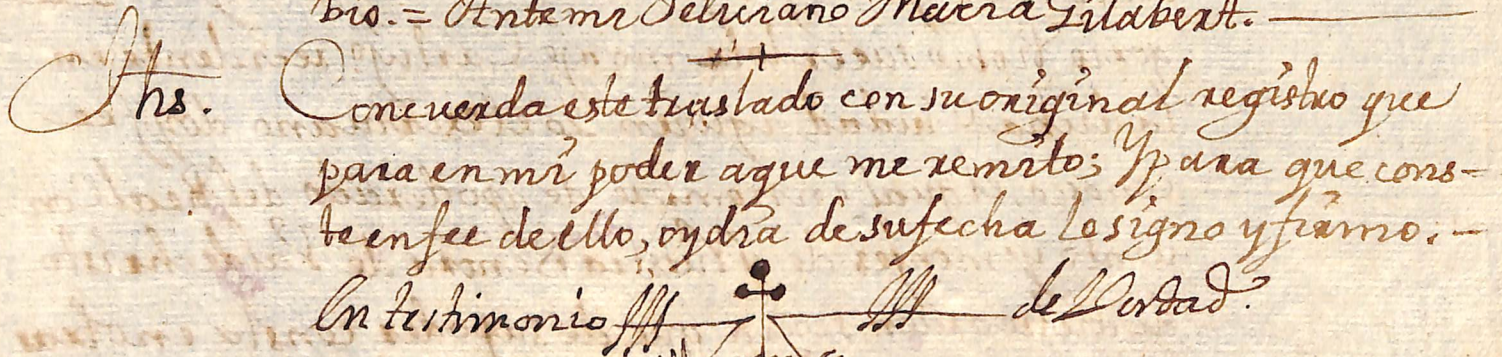 bio. = Antemi Feliciano Maria Gilabert.
Jhs. Concuerda este traslado con su original registro que
para en mi poder a que me remito; Y para que cons-
te en fee de ello, oy dia de su fecha lo signo y firmo. -
En testimonio de Verdad.